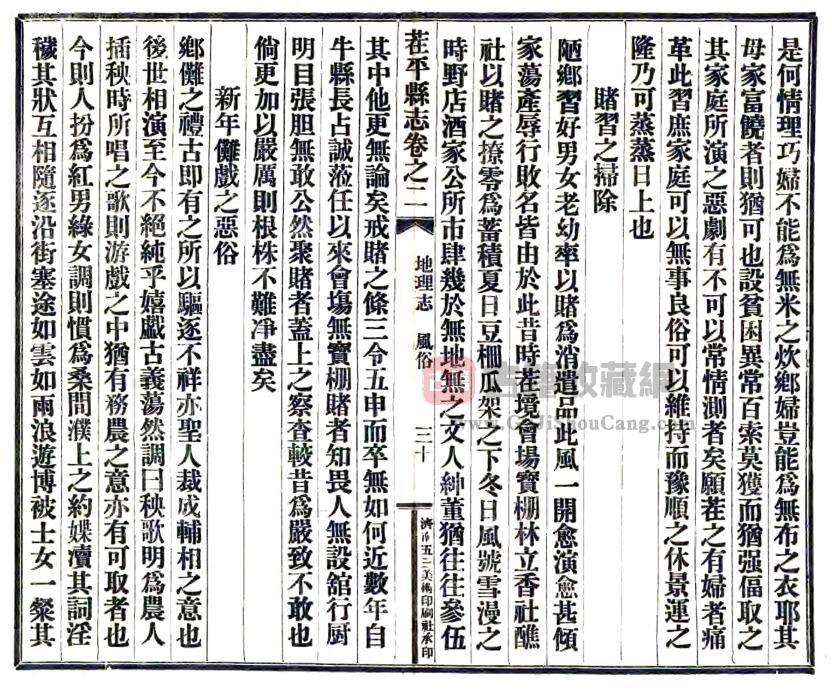 是何情理巧婦不能爲無米之炊鄉婦豈能爲無布之衣耶其
母家富饒者則猶可也設貧困異常百索莫獲而猶强偪取之
其家庭所演之惡劇有不可以常情測者矣願茬之有婦者痛
革此習庶家庭可以無事良俗可以維持而豫順之休景運之
隆乃可蒸蒸日上也
賭習之掃除
陋鄉習好男女老幼率以賭爲消遣品此風一開愈演愈甚傾
家蕩產辱行敗名皆由於此昔時茬境會場寶棚林立香社醮
社以賭之撩零爲蓄積夏日豆棚瓜架之下冬日風號雪漫之
時野店酒家公所市肆幾於無地無之文人紳董猶往往參伍
茬平縣志卷之二
地理志 風俗
三十
濟南五三美術印刷社承印
其中他更無論矣戒賭之條三令五申而卒無如何近數年自
牛縣長占誠蒞任以來會塲無寶棚賭者知畏人無設舘行厨
明目張胆無敢公然聚賭者蓋上之察查較昔爲嚴致不敢也
倘更加以嚴厲則根株不難凈盡矣
新年儺戲之惡俗
鄉儺之禮古即有之所以驅逐不祥亦聖人裁成輔相之意也
後世相演至今不絕純乎嬉戲古義蕩然調曰秧歌明爲農人
插秧時所唱之歌則游戲之中猶有務農之意亦有可取者也
今則人扮爲紅男綠女調則慣爲桑間濮上之約媟瀆其詞淫
穢其狀互相隨逐沿街塞途如雲如雨浪遊博被士女一粲其
古籍收藏網
www.GuJiShouCang.com